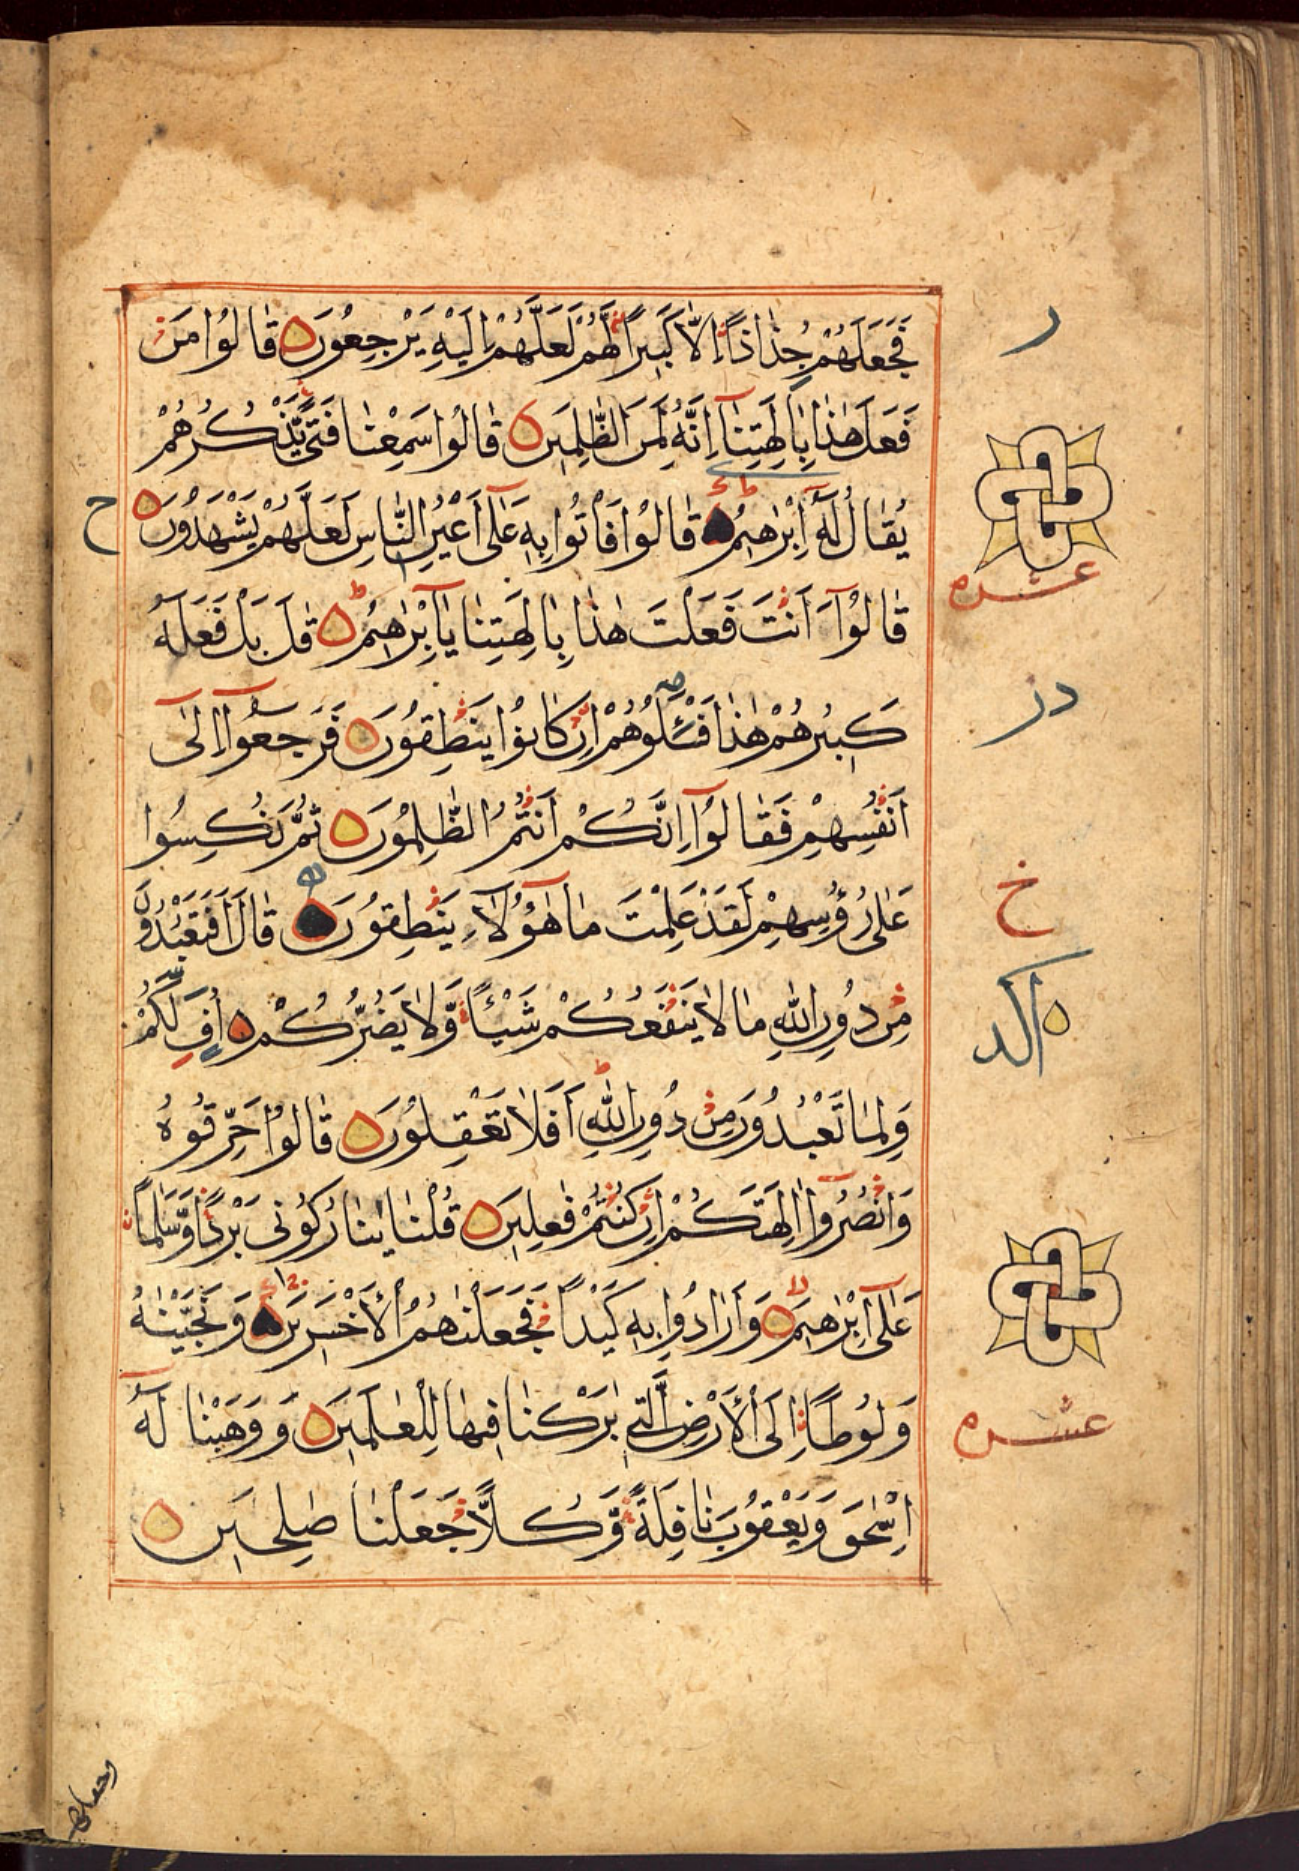 فَجَعَلَهُمْ جُذٰذًا اِلَّا كَبِيْرًا لَّهُمْ لَعَلَّهُمْ اِلَيْهِ يَرْجِعُوْنَ قَالُوْا مَنْ
فَعَلَ هٰذَا بِاٰلِهَتِنَآ اِنَّهُ لَمِنَ الظّٰلِمِيْنَ قَالُوْا سَمِعْنَا فَتًى يَّذْكُرُهُمْ
يُقَالُ لَهُٓ اِبْرٰهِيْمُ قَالُوْا فَاْتُوْا بِهٖ عَلٰٓى اَعْيُنِ النَّاسِ لَعَلَّهُمْ يَشْهَدُوْنَ
ح
قَالُوْٓا ءَاَنْتَ فَعَلْتَ هٰذَا بِاٰلِهَتِنَا يَآ اِبْرٰهِيْمُ قٰلَ بَلْ فَعَلَهُٓ
كَبِيْرُهُمْ هٰذَا فَسْـَٔلُوْهُمْ اِنْ كَانُوْا يَنْطِقُوْنَ فَرَجَعُوْٓا اِلٰٓى
اَنْفُسِهِمْ فَقَالُوْٓا اِنَّكُمْ اَنْتُمُ الظّٰلِمُوْنَ ثُمَّ نُكِسُوْا
عَلٰى رُؤُسِهِمْ لَقَدْ عَلِمْتَ مَا هٰٓؤُلَآءِ يَنْطِقُوْنَ قَالَ اَفَتَعْبُدُوْنَ
مِنْ دُوْنِ اللّٰهِ مَا لَا يَنْفَعُكُمْ شَيْـًٔا وَّلَا يَضُرُّكُمْ اُفٍّ لَّكُمْ
وَلِمَا تَعْبُدُوْنَ مِنْ دُوْنِ اللّٰهِ اَفَلَا تَعْقِلُوْنَ قَالُوْا حَرِّقُوْهُ
وَانْصُرُوْٓا اٰلِهَتَكُمْ اِنْ كُنْتُمْ فٰعِلِيْنَ قُلْنَا يٰنَارُ كُوْنِيْ بَرْدًا وَّسَلٰمًا
عَلٰٓى اِبْرٰهِيْمَ وَاَرَادُوْا بِهٖ كَيْدًا فَجَعَلْنٰهُمُ الْاَخْسَرِيْنَ وَنَجَّيْنٰهُ
وَلُوْطًا اِلَى الْاَرْضِ الَّتِيْ بٰرَكْنَا فِيْهَا لِلْعٰلَمِيْنَ وَوَهَبْنَا لَهُٓ
اِسْحٰقَ وَيَعْقُوْبَ نَافِلَةً وَّكُلًّا جَعَلْنَا صٰلِحِيْنَ
ر
عشره
در
خ
عشره